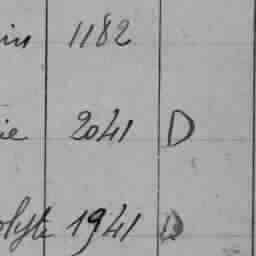 in 1182
ie 2041 D
olyte 1941 D